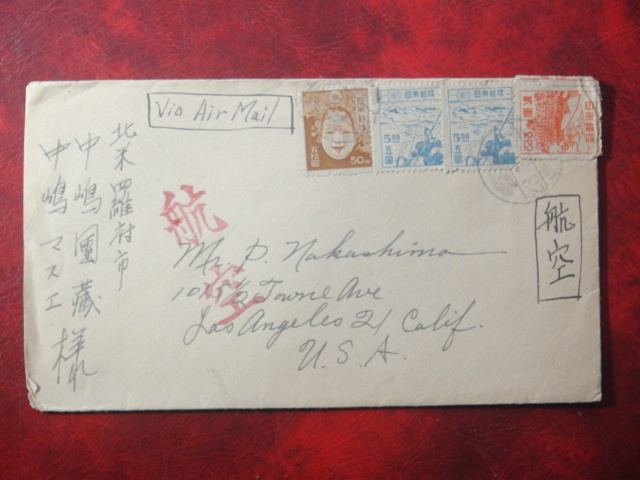 Via Air Mail
日本郵便
五拾圓
50.00
日本郵便
5.00
五圓
日本郵便
5.00
五圓
日本郵便
航空
航空
Mr. D. Nakashima
101 1/2 Towne Ave
Los Angeles 21 Calif.
U.S.A.
北米羅府市
中嶋團藏様
中嶋マスエ